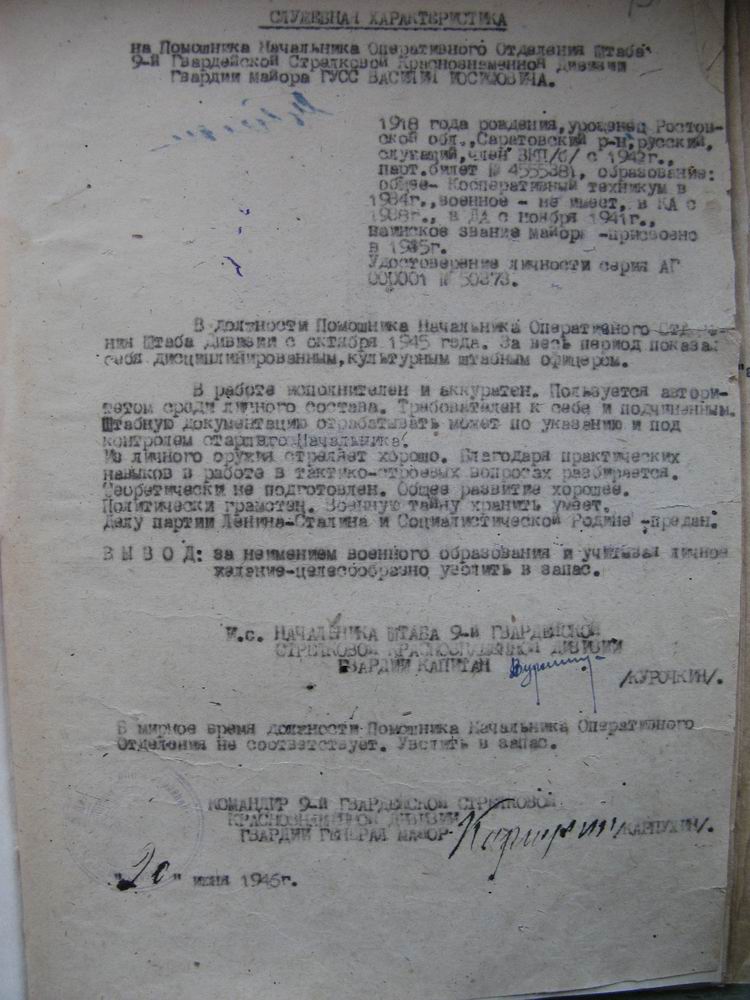 СЛУЖЕБНАЯ ХАРАКТЕРИСТИКА
на Помошника Начальника Оперативного Отделения Штаба
9-й Гвардейской Стрелковой Краснознаменной Дивизии
Гвардии майора ГУСС ВАСИЛИЯ ИОСИФОВИЧА.
1918 года рождения, уроженец Ростов-
ской обл., Саратовский р-н, русский,
служащий, член ВКП/б/ с 1942г.,
парт.билет №, образование:
общее- Кооперативный техникум в
г., военное - не имеет, в КА с
г., в ДА с ноября 1941г.,
воинское звание майор -присвоено
в 1945г.
Удостоверение личности серия АГ
000001 № 50373.
В должности Помошника Начальника Оперативного Отделе-
ния Штаба Дивизии с октября 1945 года. За весь период показал
себя дисциплинированным, культурным штабным офицером.
В работе исполнителен и аккуратен. Пользуется автори-
тетом среди личного состава. Требователен к себе и подчиненным.
Штабную документацию отрабатывать может по указанию и под
контролем старшего Начальника.
Из личного оружия стреляет хорошо. Благодаря практических
навыков в работе в тактико-строевых вопросах разбирается.
Теоретически не подготовлен. Общее развитие хорошее.
Политически грамотен. Военную тайну хранить умеет.
Делу партии Ленина-Сталина и Социалистической Родине -предан.
В Ы В О Д: за неимением военного образования и учитывая личное
желание-целесообразно уволить в запас.
И.с. НАЧАЛЬНИКА ШТАБА 9-й ГВАРДЕЙСКОЙ
СТРЕЛКОВОЙ КРАСНОЗНАМЕННОЙ ДИВИЗИИ
ГВАРДИИ КАПИТАН
/КУРОЧКИН/.
В мирное время должности Помошника Начальника Оперативного
Отделения не соответствует. Уволить в запас.
КОМАНДИР 9-й ГВАРДЕЙСКОЙ СТРЕЛКОВОЙ
КРАСНОЗНАМЕННОЙ ДИВИЗИИ
ГВАРДИИ ГЕНЕРАЛ МАЙОР /КАРПУХИН/.
"20" июня 1946г.